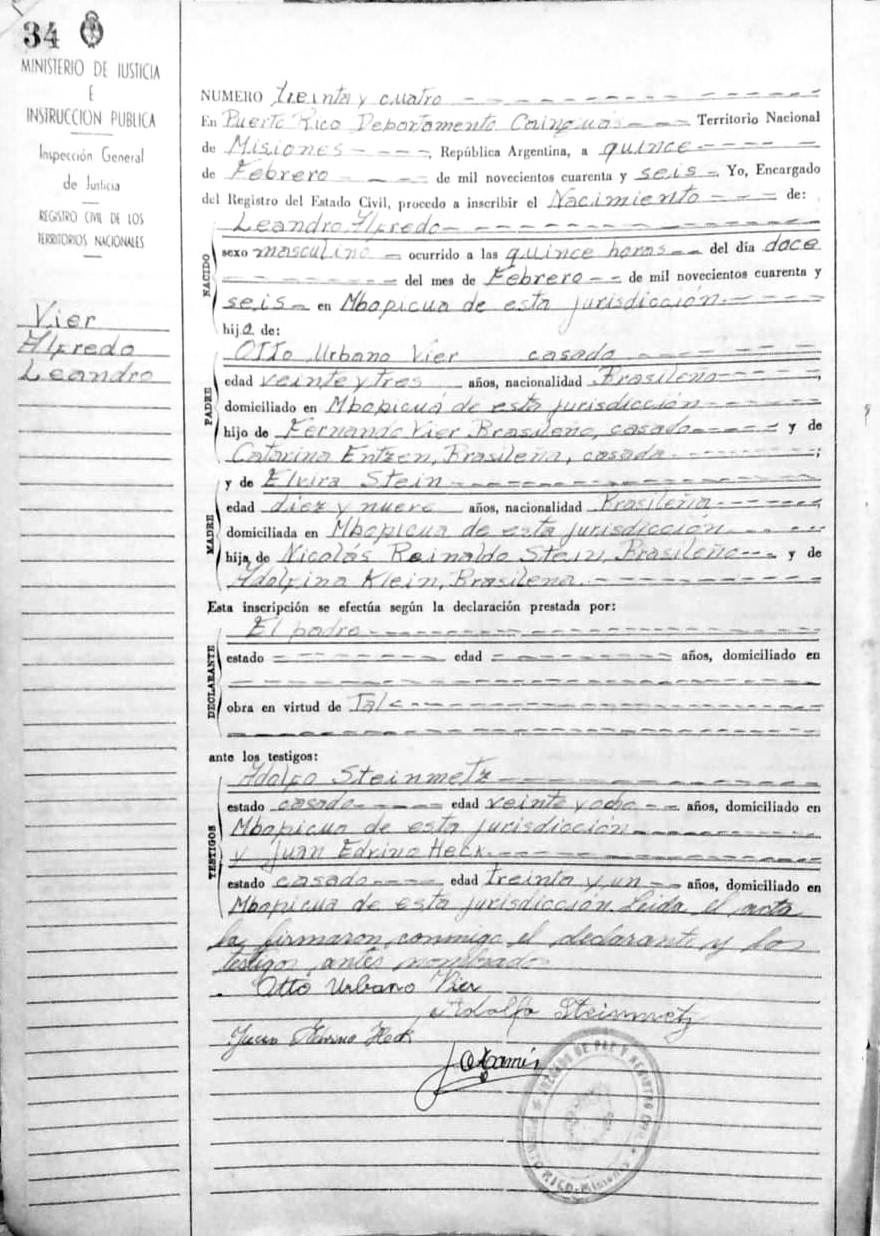 34
MINISTERIO DE JUSTICIA
E
INSTRUCCION PUBLICA
Inspección General
de Justicia
REGISTRO CIVIL DE LOS
TERRITORIOS NACIONALES
Vier
Alfredo
Leandro
NUMERO treinta y cuatro
En Puerto Rico Departamento Cainguás Territorio Nacional
de Misiones, República Argentina, a quince
de Febrero de mil novecientos cuarenta y seis. Yo, Encargado
del Registro del Estado Civil, procedo a inscribir el Nacimiento de:
NACIDO
Leandro Alfredo
sexo masculino ocurrido a las quince horas del día doce
del mes de Febrero de mil novecientos cuarenta y
seis en Mbopicua de esta jurisdicción
hijo de:
PADRE
Otto Urbano Vier casado
edad veinte y tres años, nacionalidad Brasileño
domiciliado en Mbopicuá de esta jurisdicción
hijo de Fernando Vier Brasileño, casado y de
Catarina Entzen, Brasileña, casada ;
MADRE
y de Elvira Stein
edad diez y nueve años, nacionalidad Brasileña
domiciliada en Mbopicua de esta jurisdicción
hija de Nicolás Reinaldo Stein, Brasileño y de
Adolfina Klein, Brasilena.
Esta inscripción se efectúa según la declaración prestada por:
DECLARANTE
El padre
estado edad años, domiciliado en
obra en virtud de Tal
ante los testigos:
TESTIGOS
Adolfo Steinmetz
estado casado edad veinte y ocho años, domiciliado en
Mbopicua de esta jurisdicción
y Juan Edvino Heck
estado casado edad treinta y un años, domiciliado en
Mbopicua de esta jurisdicción. Leida el acta
la firmaron conmigo el declarante y los
testigos antes nombrados
Otto Urbano Vier
Adolfo Steinmetz
Juan Edvino Heck
JUZGADO DE PAZ Y REGISTRO CIVIL
PUERTO RICO - Misiones